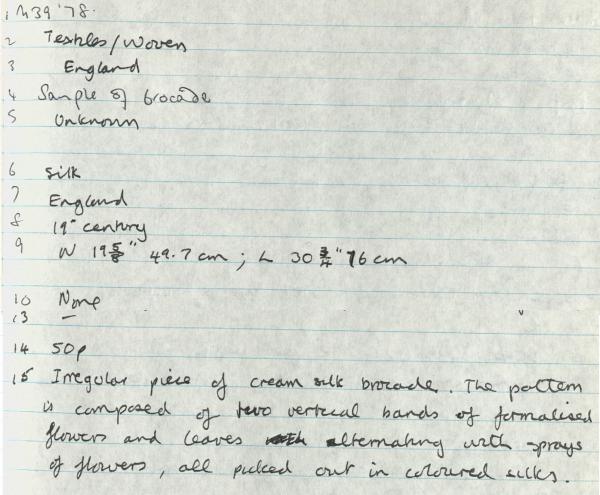 1 M39 '78.
2 Textiles/Woven
3 England
4 Sample of brocade
5 Unknown
6 Silk
7 England
8 19th century
9 W 19 5/8" 49.7 cm ; L 30 3/4" 76 cm
10 None
13 —
14 50p
15 Irregular piece of cream silk brocade. The pattern
is composed of two vertical bands of formalised
flowers and leaves alternating with sprays
of flowers, all picked out in coloured silks.